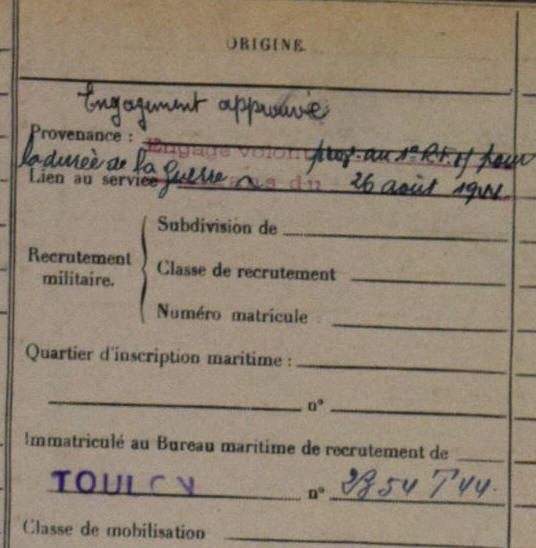 ORIGINE
Engagement approuvé
Provenance : Engagé volont prov. au 1er R.F.M pour
la durée de la guerre
Lien au service ans du 26 août 1944.
Subdivision de
Recrutement militaire.
Classe de recrutement
Numéro matricule
Quartier d'inscription maritime :
n°
Immatriculé au Bureau maritime de recrutement de
TOULON n° 2854 T 44.
Classe de mobilisation